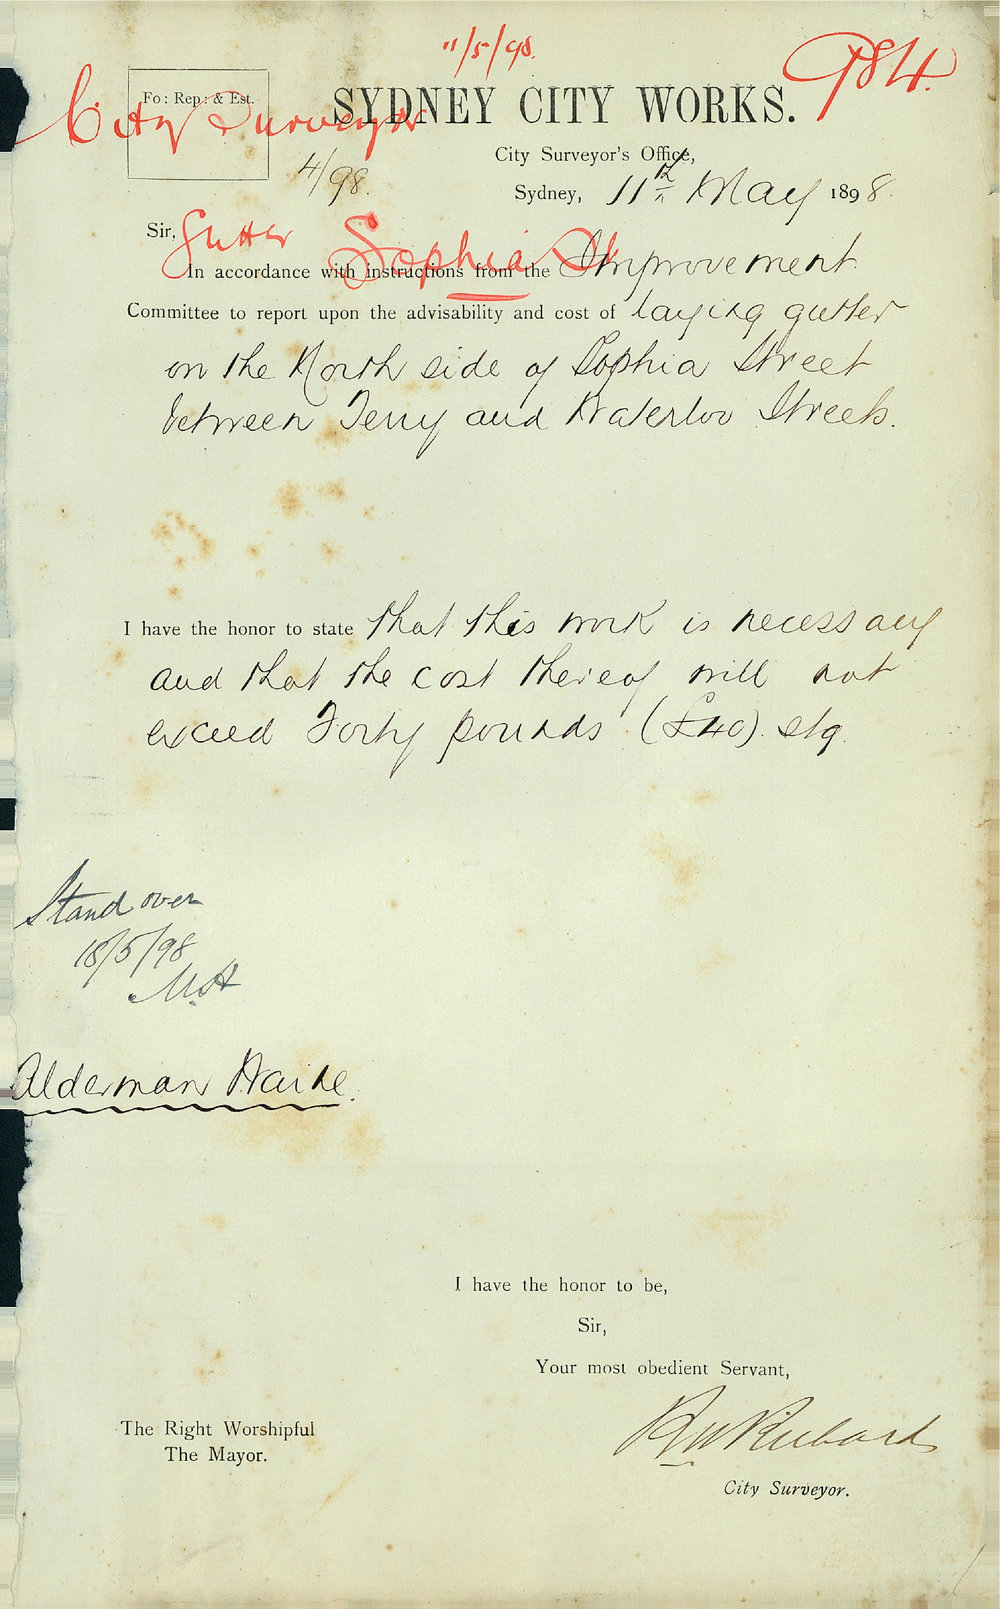 11/5/98.
984.
Fo: Rep: & Est.
City Surveyor
SYDNEY CITY WORKS.
4/98.
City Surveyor's Office,
Sydney, 11th May 1898.
Sir,
Gutter Sophia St
In accordance with instructions from the Improvement
Committee to report upon the advisability and cost of laying gutter
on the North side of Sophia Street
between Terry and Waterloo Streets.
I have the honor to state that this work is necessary
and that the cost thereof will not
exceed Forty pounds (£40) stg.
Stand over
18/5/98
Alderman
I have the honor to be,
Sir,
Your most obedient Servant,
R W Richards
City Surveyor.
The Right Worshipful
The Mayor.